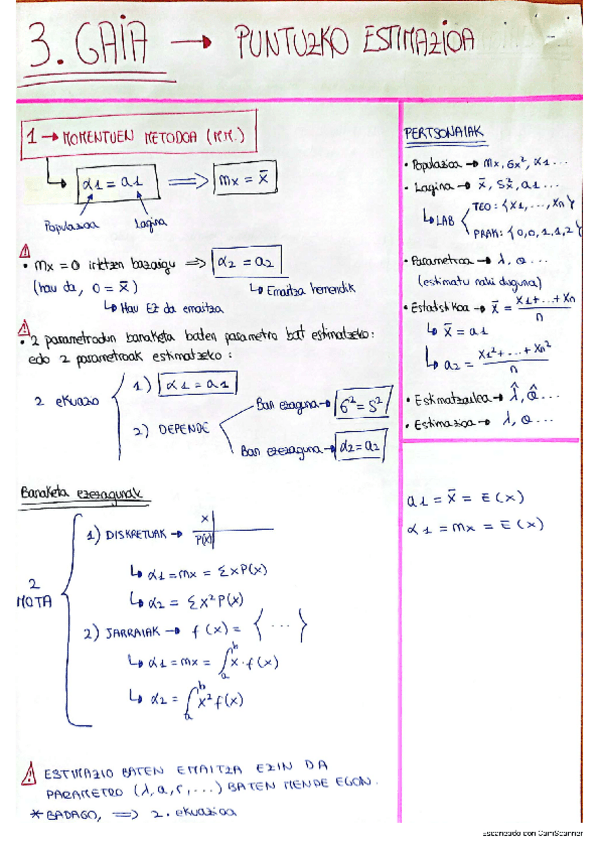 3. GAIA → PUNTUZKO ESTIMAZIOA
1 → MOMENTUEN METODOA (M.M.)
α1 = a1 ⇒ mx = x̄
Populazioa Lagina
• mx = 0 irtetzen bazaigu ⇒ α2 = a2
(hau da, 0 = x̄) ↳ Emaitza hemendik
↳ Hau EZ da emaitza
• 2 parametrodun banaketa baten parametro bat estimatzeko:
edo 2 parametroak estimatzeko:
2 ekuazio
1) α1 = a1
2) DEPENDE
Ban ezaguna → σ² = s²
Ban ezezaguna → α2 = a2
Banaketa ezezagunak
2 MOTA
1) DISKRETUAK → x
P(x)
↳ α1 = mx = Σ x P(x)
↳ α2 = Σ x² P(x)
2) JARRAIAK → f(x) = { ... }
↳ α1 = mx = ∫ₐᵇ x · f(x)
↳ α2 = ∫ₐᵇ x² f(x)
⚠ ESTIMAZIO BATEN EMAITZA EZIN DA
PARAMETRO (λ, a, r, ...) BATEN MENDE EGON.
* BADAGO, ⇒ 2. ekuazioa
PERTSONAIAK
• Populazioa → mx, σx², α1 ...
• Lagina → x̄, Sx², a1 ...
↳ LAB
TEO: {x1, ..., xn}
PRAK: {0,0,1,1,2}
• Parametroa → λ, θ ...
(estimatu nahi duguna)
• Estatistikoa → x̄ = (x1 + ... + xn) / n
↳ x̄ = a1
↳ a2 = (x1² + ... + xn²) / n
• Estimatzailea → λ̂, θ̂ ...
• Estimazioa → λ, θ ...
a1 = x̄ = E(x)
α1 = mx = E(x)
Escaneado con CamScanner